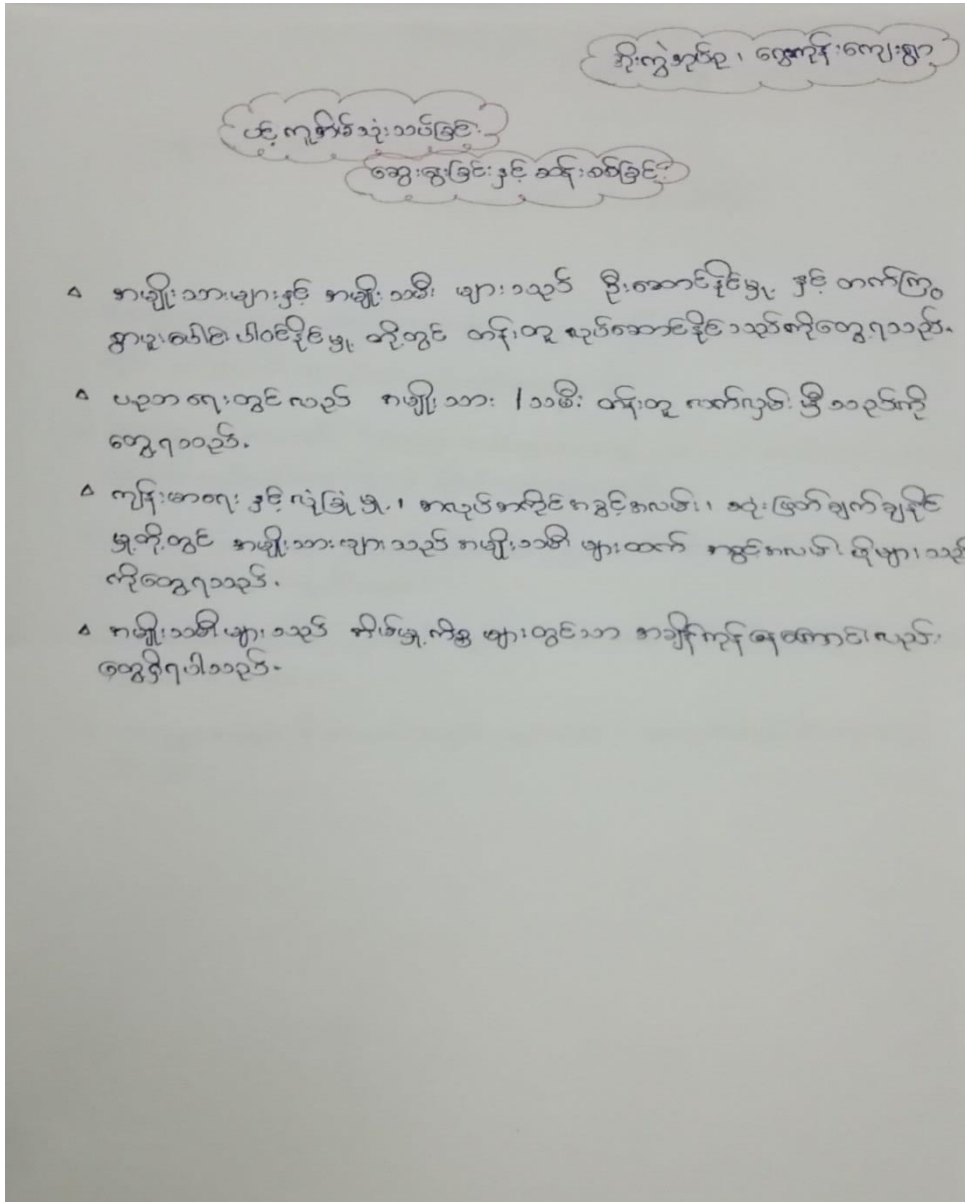 အိုးကွဲအုပ်စု၊ ရွှေကုန်းကျေးရွာ
ပင့်ကူအိမ်သုံးသပ်ခြင်း
ဆွေးနွေးခြင်းနှင့် ဆန်းစစ်ခြင်း
အမျိုးသားများနှင့် အမျိုးသမီး များသည် ဦးဆောင်နိုင်မှု နှင့် တက်ကြွ
စွာပူးပေါင်းပါဝင်နိုင်မှု တို့တွင် တန်းတူ လုပ်ဆောင်နိုင်သည်ကိုတွေ့ရသည်။
ပညာရေးတွင်လည်း အမျိုးသား / သမီး တန်းတူ လက်လှမ်းမှီသည်ကို
တွေ့ရသည်။
ကျန်းမာရေး နှင့် လုံခြုံမှု၊ အလုပ်အကိုင်အခွင့်အလမ်း၊ ဆုံးဖြတ်ချက်ချနိုင်
မှုတို့တွင် အမျိုးသားများသည် အမျိုးသမီးများထက် အခွင့်အလမ်း ပိုများသည်
ကိုတွေ့ရသည်။
အမျိုးသမီးများသည် အိမ်မှုကိစ္စ များတွင်သာ အချိန်ကုန်နေကြောင်းလည်း
တွေ့ရှိရပါသည်။